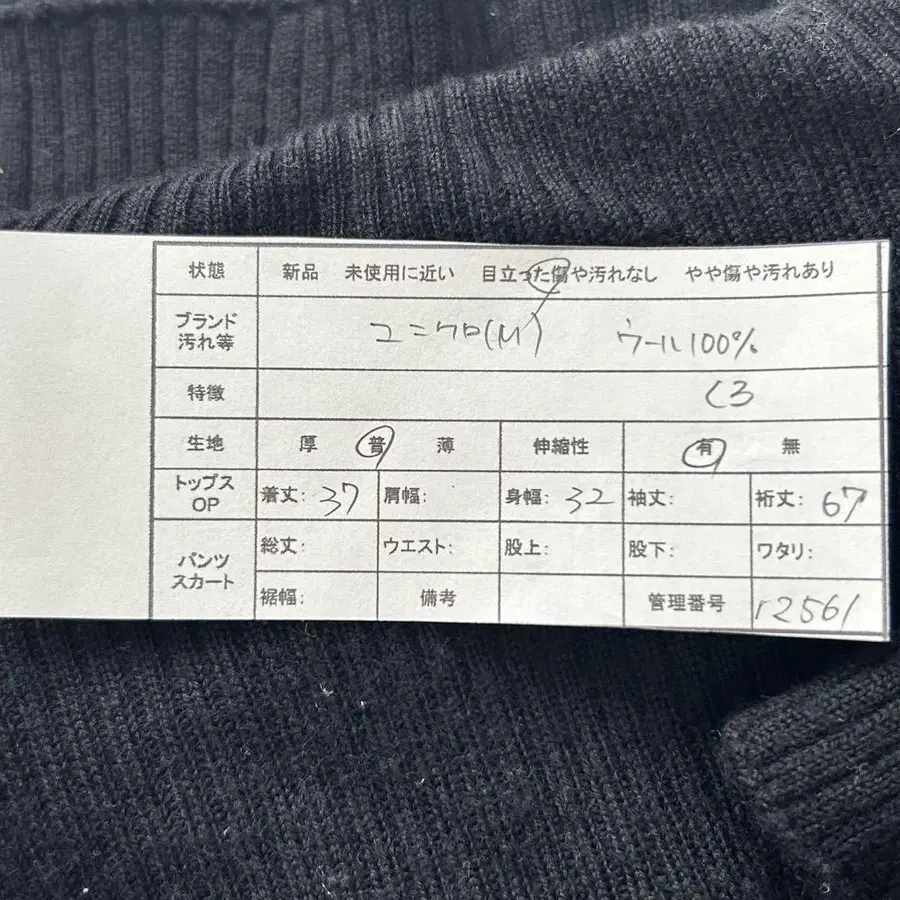 状態 新品 未使用に近い 目立った傷や汚れなし やや傷や汚れあり
ブランド 汚れ等 ユニクロ(M) ウール100%
特徴 くろ
生地 厚 普 薄 伸縮性 有 無
トップス OP 着丈: 37 肩幅: 身幅: 32 袖丈: 裄丈: 67
パンツ スカート 総丈: ウエスト: 股上: 股下: ワタリ:
裾幅: 備考 管理番号 r2561